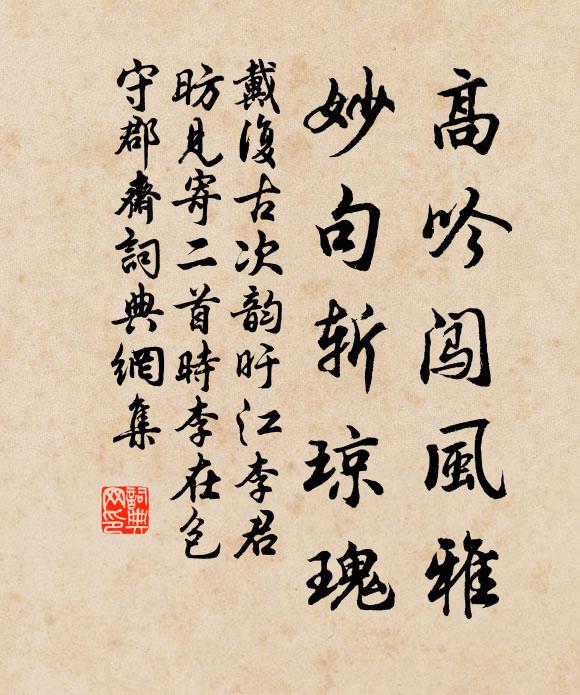 高吟闯風雅
妙句斩琼瑰
戴復古次韵旴江李君
昉見寄二首時李在包
守郡齋詞典網集
詞典
网印